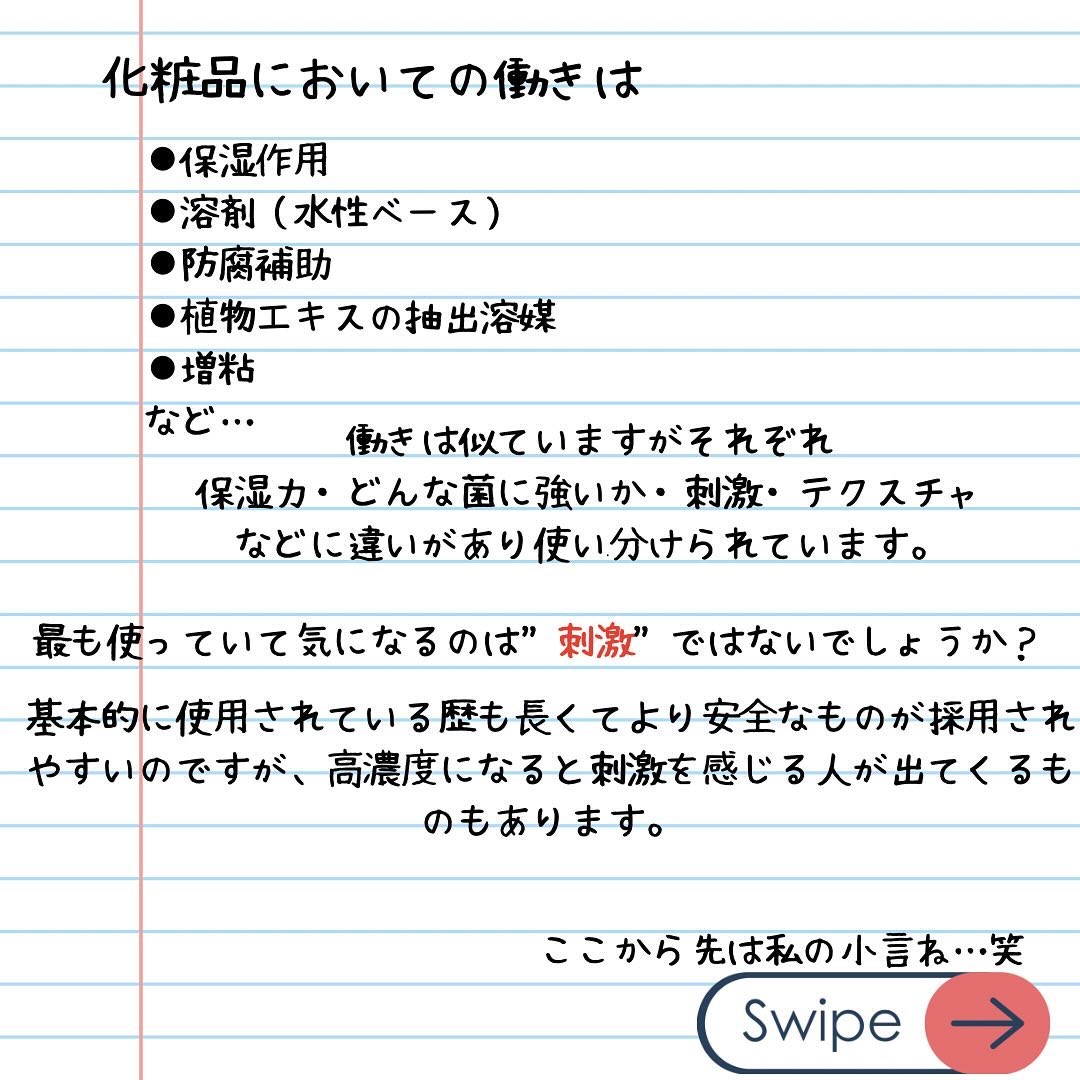 化粧品においての働きは
●保湿作用
●溶剤（水性ベース）
●防腐補助
●植物エキスの抽出溶媒
●増粘
など…
働きは似ていますがそれぞれ
保湿力・どんな菌に強いか・刺激・テクスチャ
などに違いがあり使い分けられています。
最も使っていて気になるのは”刺激”ではないでしょうか？
基本的に使用されている歴も長くてより安全なものが採用され
やすいのですが、高濃度になると刺激を感じる人が出てくるも
のもあります。
ここから先は私の小言ね…笑
Swipe